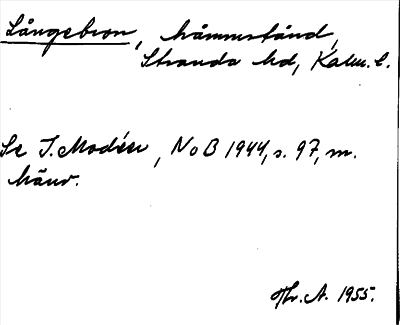 Långebron, håmmstånd,
Stranda hd, Kalm. l.
Se I. Modéer, NoB 1944, s. 97, m.
hänv.
Hr. A. 1955.